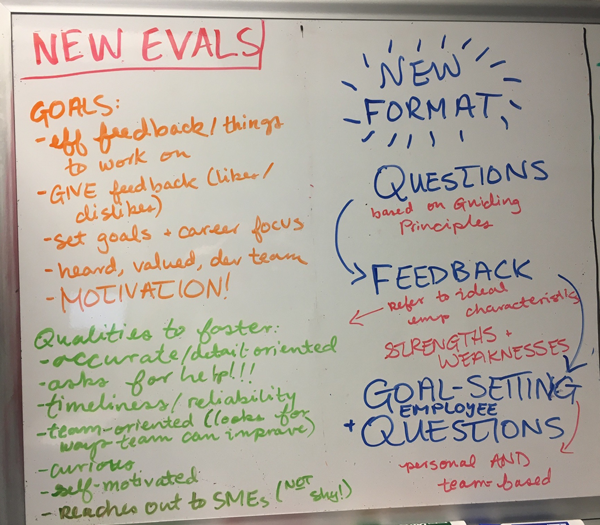 NEW EVALS
GOALS:
- eff feedback/things
to work on
- GIVE feedback (likes/
dislikes)
- set goals + career focus
- heard, valued, dev team
- MOTIVATION!
Qualities to foster:
- accurate/detail oriented
- asks for help!!!
- timeliness/reliability
- team-oriented (looks for
ways team can improve)
- curious
- self-motivated
- reaches out to SMEs (NOT
shy!)
NEW
FORMAT
QUESTIONS
based on Guiding
Principles
FEEDBACK
refer to ideal
emp characteristics
STRENGTHS +
WEAKNESSES
GOAL-SETTING
EMPLOYEE
+ QUESTIONS
personal AND
team-based